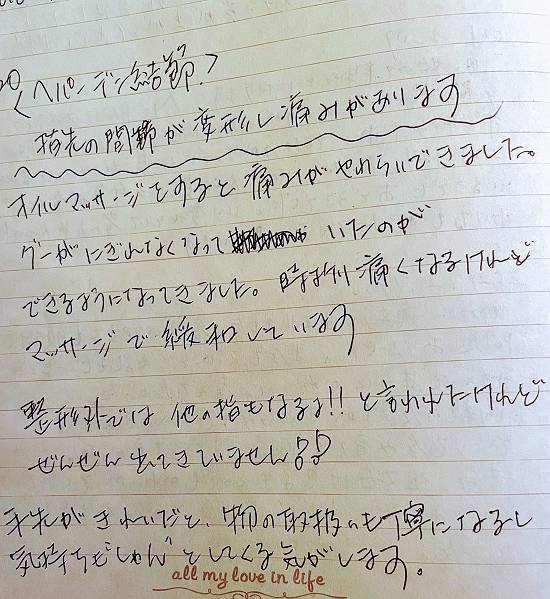 <ヘバーデン結節>
指先の関節が変形し痛みがあります
オイルマッサージをすると痛みがやわらいできました。
グーがにぎれなくなって いたのが
できるようになってきました。時折痛くなるけれど
マッサージで緩和しています
整形外では他の指もなるよ!!と言われたけれど
ぜんぜん出てきていません♪♪
手先がきれいだと、物の取扱いも丁寧になるし
気持ちも"しゃん"としてくる気がします。
all my love in life